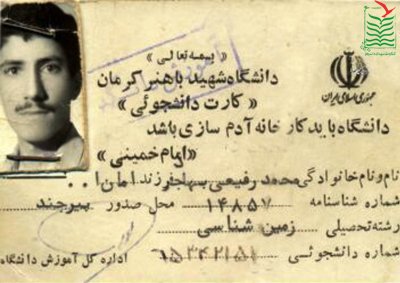 « بسمه تعالی »
دانشگاه شهید باهنر کرمان
« کارت دانشجوئی »
جمهوری اسلامی ایران
دانشگاه باید کارخانه آدم سازی باشد
«امام خمینی»
نام و نام خانوادگی محمد رفیعی مهاجر فرزند امان ا..
شماره شناسنامه ۱۴۸۵۷ محل صدور بیرجند
رشته تحصیلی زمین شناسی
شماره دانشجوئی ۶۵۳۴۲۱۵۱ اداره کل آموزش دانشگاه